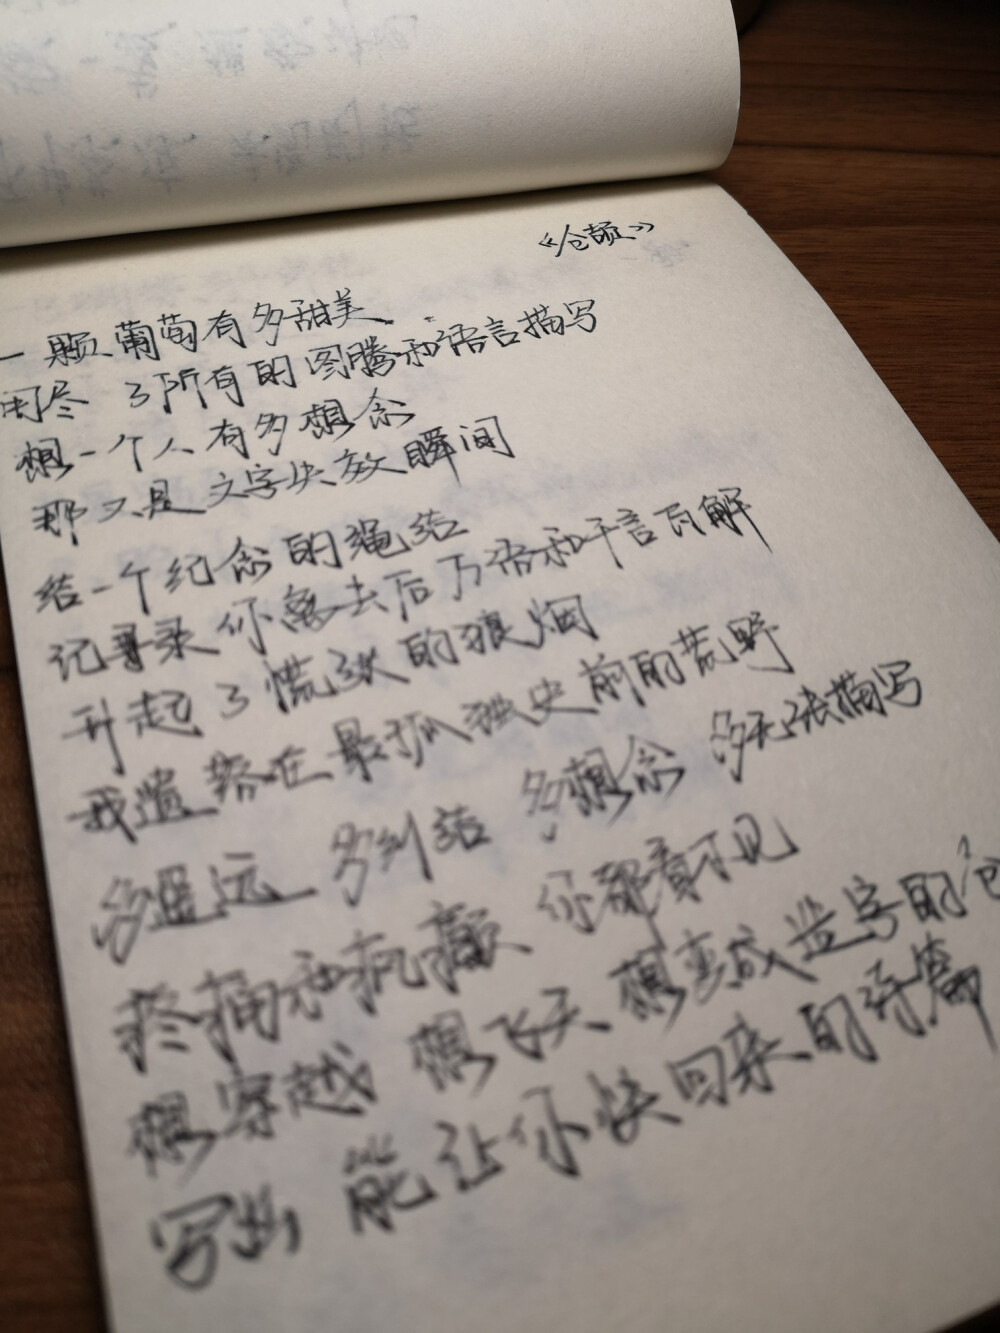 《仓颉》
一颗葡萄有多甜美
用尽了所有的图腾和语言描写
想一个人有多想念
那又是文字失效瞬间
结一个纪念的绳结
记录你离去后万语和千言瓦解
升起了慌张的狼烟
我遗落在最孤独史前的荒野
多遥远 多纠结 多想念 多无法描写
疼痛和疯癫 你都看不见
想穿越 想飞天 想变成造字的仓
写出 能让你快回来的诗篇